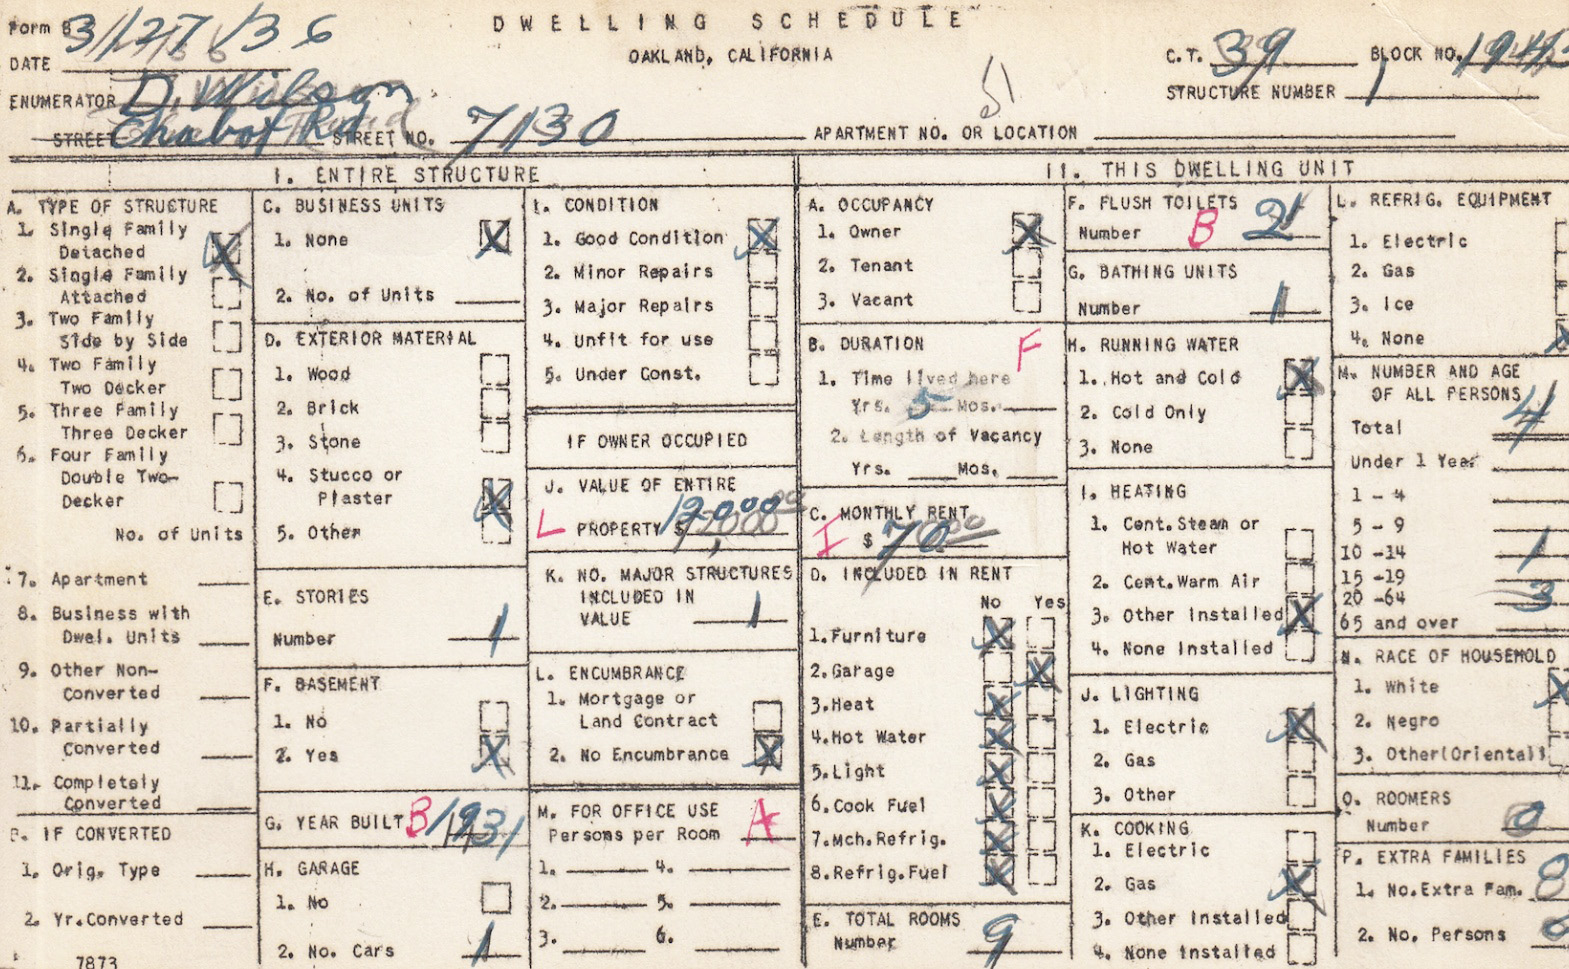 Form B
DWELLING SCHEDULE
OAKLAND, CALIFORNIA
DATE 3/27/36
C.T. 39 BLOCK NO.
ENUMERATOR D. Wilson
STRUCTURE NUMBER 1
51
STREET Chabot Rd STREET NO. 7130 APARTMENT NO. OR LOCATION
I. ENTIRE STRUCTURE
A. TYPE OF STRUCTURE
1. Single Family
Detached X
2. Single Family
Attached
3. Two Family
Side by Side
4. Two Family
Two Decker
5. Three Family
Three Decker
6. Four Family
Double Two-
Decker
No. of Units
7. Apartment
8. Business with
Dwel. Units
9. Other Non-
Converted
10. Partially
Converted
11. Completely
Converted
B. IF CONVERTED
1. Orig. Type
2. Yr.Converted
7873
C. BUSINESS UNITS
1. None X
2. No. of Units
D. EXTERIOR MATERIAL
1. Wood
2. Brick
3. Stone
4. Stucco or
Plaster X
5. Other
E. STORIES
Number 1
F. BASEMENT
1. No
2. Yes X
G. YEAR BUILT B 1931
H. GARAGE
1. No
2. No. Cars 1
I. CONDITION
1. Good Condition X
2. Minor Repairs
3. Major Repairs
4. Unfit for use
5. Under Const.
IF OWNER OCCUPIED
J. VALUE OF ENTIRE
L PROPERTY $ 12,000.00
K. NO. MAJOR STRUCTURES
INCLUDED IN
VALUE 1
L. ENCUMBRANCE
1. Mortgage or
Land Contract
2. No Encumbrance X
M. FOR OFFICE USE
Persons per Room A
1. 4.
2. 5.
3. 6.
II. THIS DWELLING UNIT
A. OCCUPANCY
1. Owner X
2. Tenant
3. Vacant
B. DURATION F
1. Time lived here
Yrs. 5 Mos.
2. Length of Vacancy
Yrs. Mos.
C. MONTHLY RENT
I $ 70.00
D. INCLUDED IN RENT
No Yes
1.Furniture X
2.Garage X
3.Heat X
4.Hot Water X
5.Light X
6.Cook Fuel X
7.Mch.Refrig. X
8.Refrig.Fuel X
E. TOTAL ROOMS
Number 9
F. FLUSH TOILETS
Number B 2
G. BATHING UNITS
Number 1
H. RUNNING WATER
1. Hot and Cold X
2. Cold Only
3. None
I. HEATING
1. Cent.Steam or
Hot Water
2. Cent.Warm Air
3. Other Installed X
4. None Installed
J. LIGHTING
1. Electric X
2. Gas
3. Other
K. COOKING
1. Electric
2. Gas X
3. Other Installed
4. None Installed
L. REFRIG. EQUIPMENT
1. Electric
2. Gas
3. Ice
4. None X
M. NUMBER AND AGE
OF ALL PERSONS
Total 4
Under 1 Year
1 - 4
5 - 9
10 -14 1
15 -19
20 -64 3
65 and over
N. RACE OF HOUSEHOLD
1. White X
2. Negro
3. Other(Oriental)
O. ROOMERS
Number 0
P. EXTRA FAMILIES
1. No.Extra Fam.
2. No. Persons 0